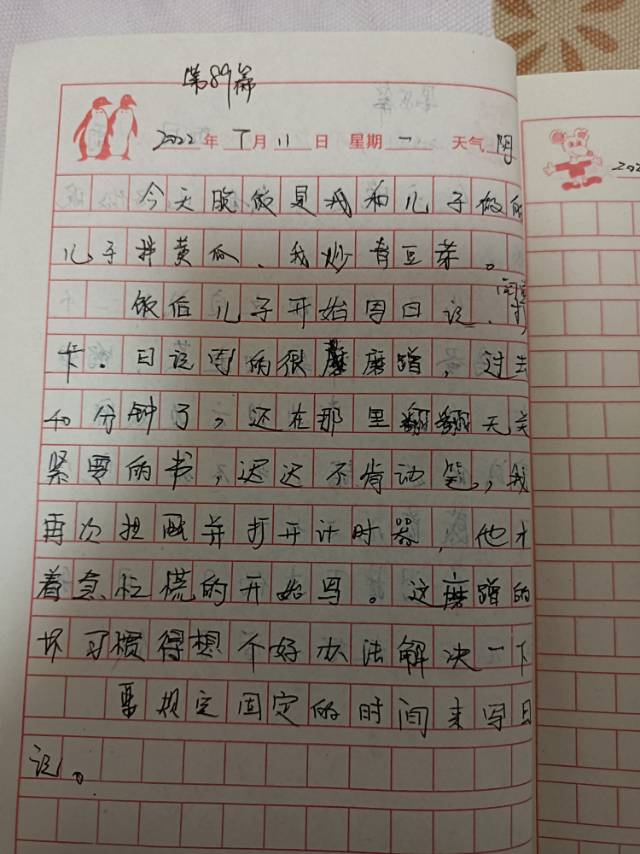 第89篇
2022年 7月 11日 星期一 天气 阴
今天晚饭是我和儿子做的
儿子拌黄瓜、我炒青豆芽。
饭后儿子开始写日记、
卡.日记写的很磨蹭，过去
40分钟了，还在那里翻翻无关
紧要的书，迟迟不肯动笔，我
再次提醒并打开计时器，他才
着急忙慌的开始写。这磨蹭的
坏习惯得想个好办法解决一下
要规定固定的时间来写日
记。
202